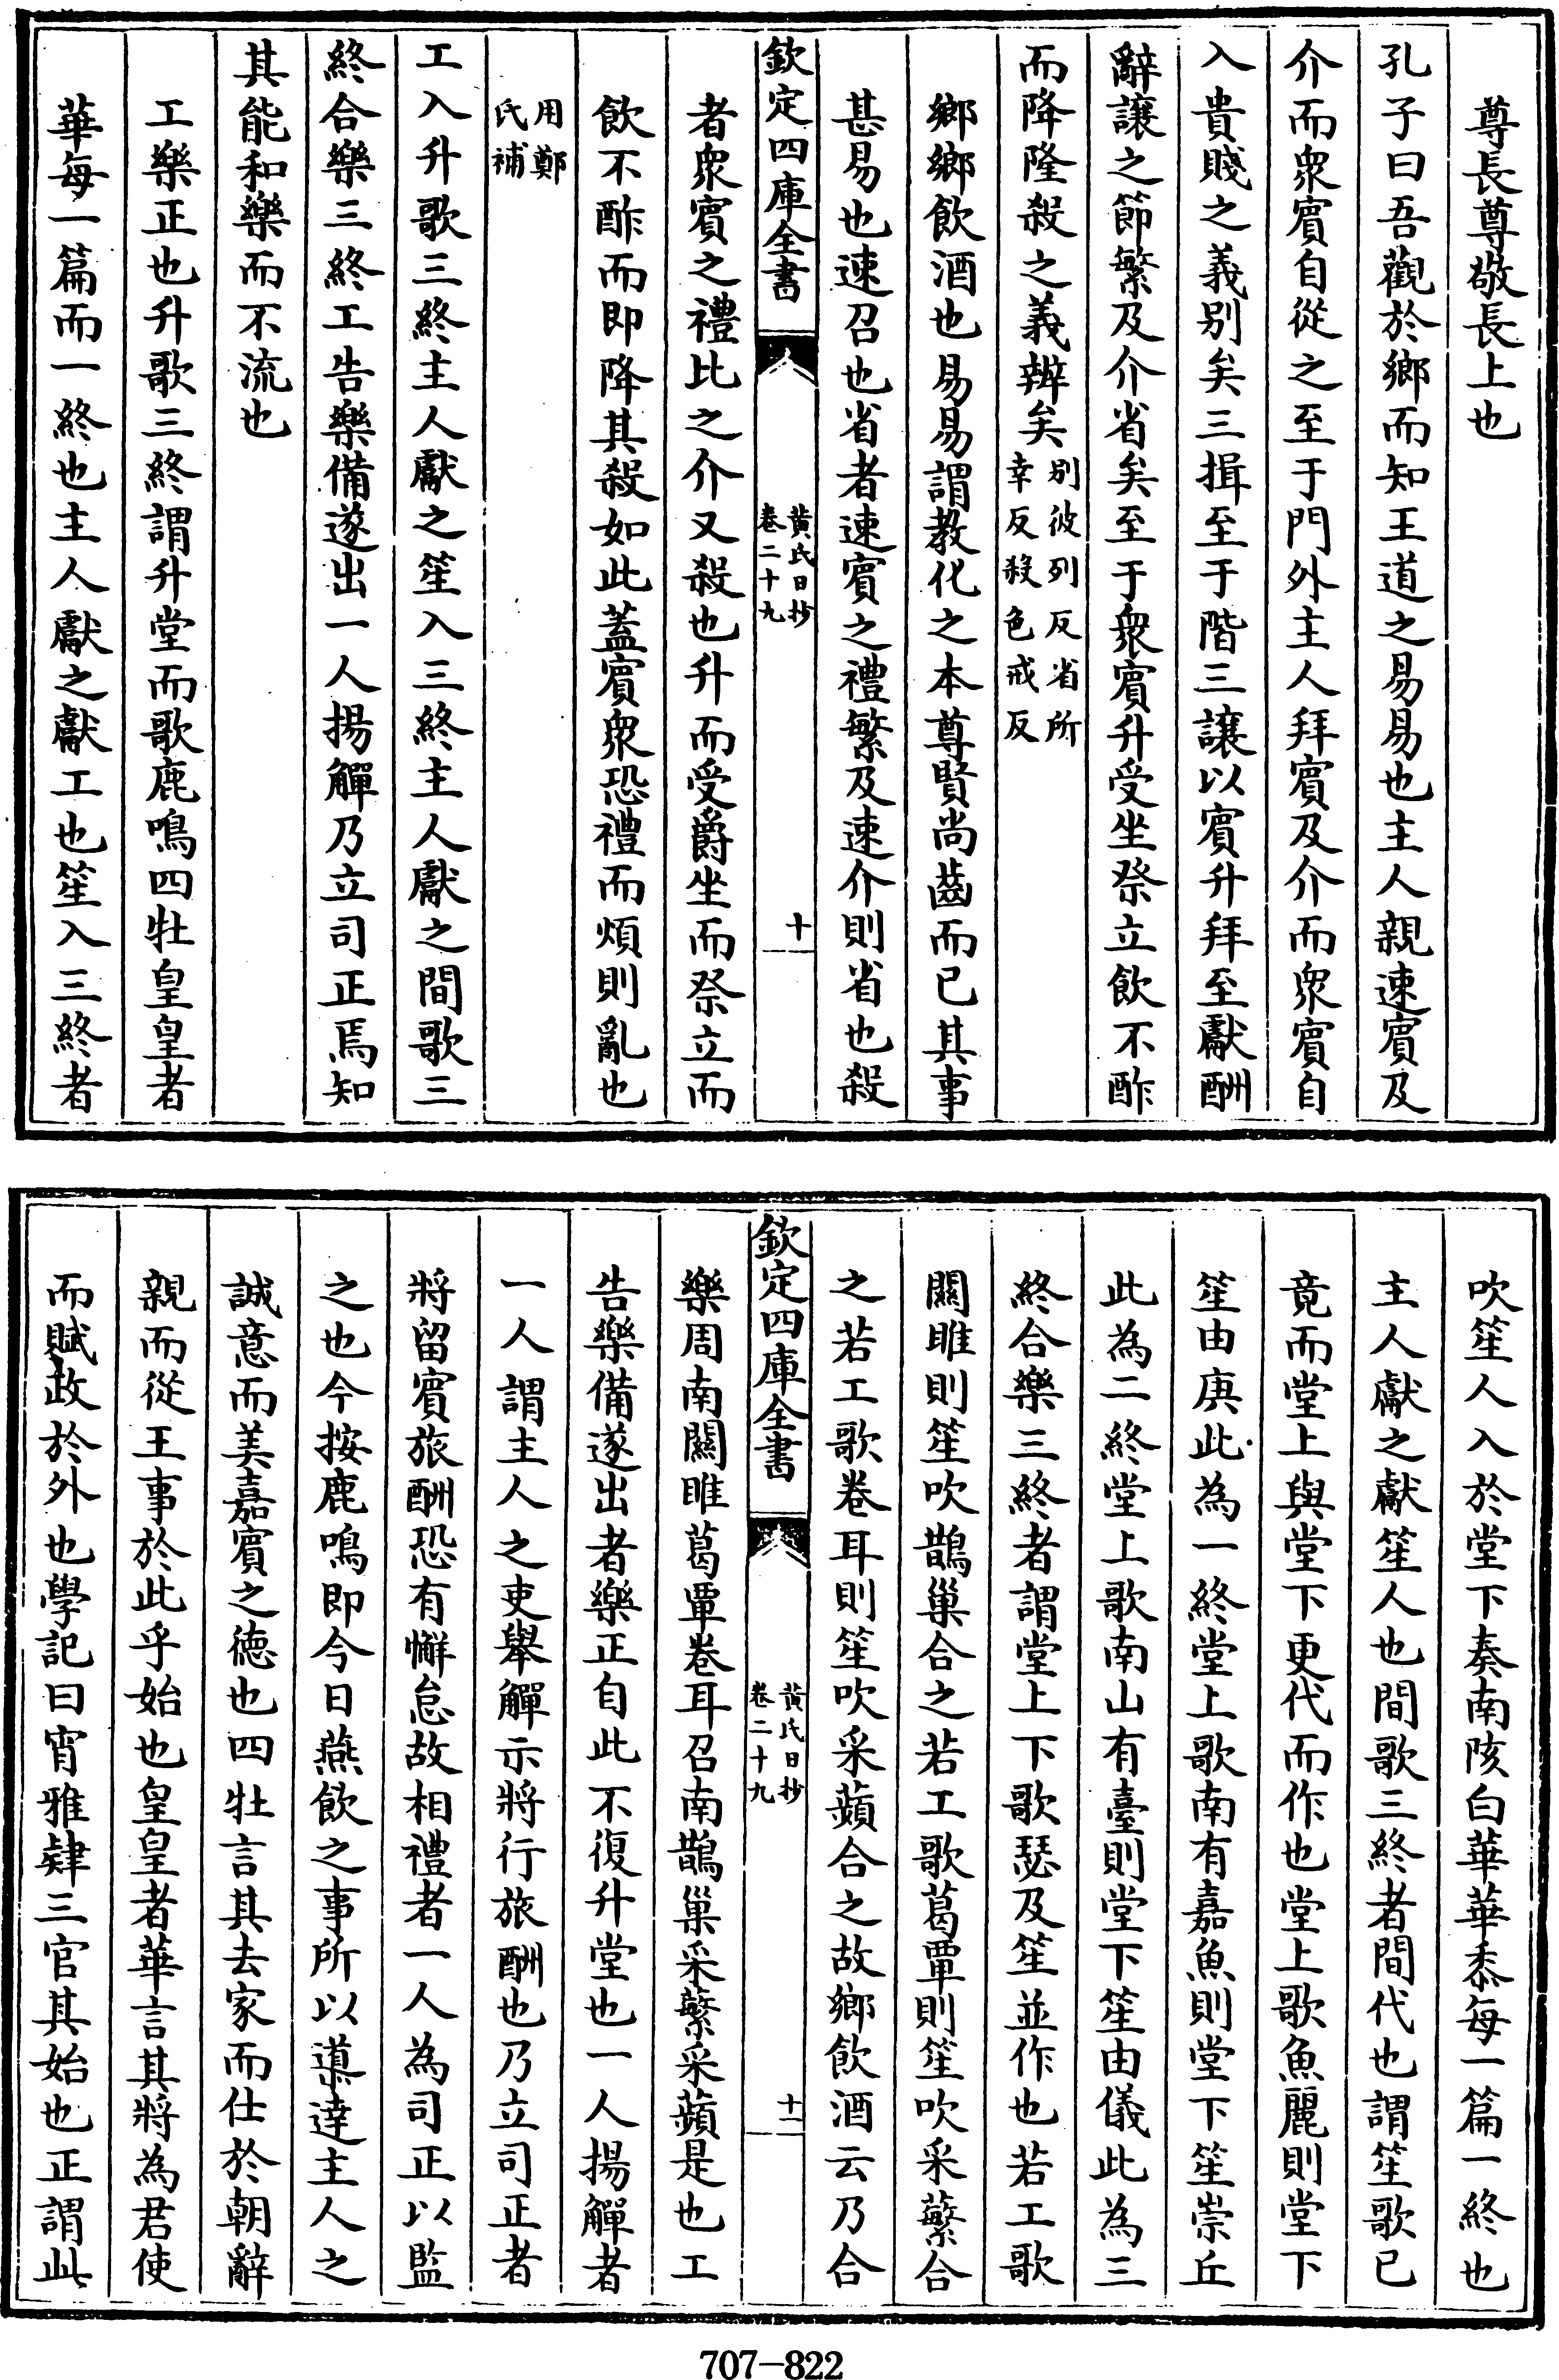 尊長尊敬長上也
孔子曰吾觀於鄉而知王道之易易也主人親速賓及
介而衆賓自從之至于門外主人拜賓及介而衆賓自
入貴賤之義别矣三揖至于階三讓以賓升拜至獻酬
辭讓之節繁及介省矣至于衆賓升受坐祭立飲不酢
而降隆殺之義辨矣别彼列反省所
幸反殺色戒反
鄉鄉飲酒也易易謂教化之本尊賢尚齒而已其事
甚易也速召也省者速賓之禮繁及速介則省也殺
欽定四庫全書
黄氏日抄
卷二十九
十
者衆賓之禮比之介又殺也升而受爵坐而祭立而
飲不酢而即降其殺如此蓋賓衆恐禮而煩則亂也
用鄭
氏補
工入升歌三終主人獻之笙入三終主人獻之間歌三
終合樂三終工告樂備遂出一人揚觶乃立司正焉知
其能和樂而不流也
工樂正也升歌三終謂升堂而歌鹿鳴四牡皇皇者
華每一篇而一終也主人獻之獻工也笙入三終者
吹笙人入於堂下奏南陔白華華黍每一篇一終也
主人獻之獻笙人也間歌三終者間代也謂笙歌已
竟而堂上與堂下更代而作也堂上歌魚麗則堂下
笙由庚此為一終堂上歌南有嘉魚則堂下笙崇丘
此為二終堂上歌南山有臺則堂下笙由儀此為三
終合樂三終者謂堂上下歌瑟及笙並作也若工歌
關雎則笙吹鵲巢合之若工歌葛覃則笙吹采蘩合
之若工歌卷耳則笙吹采蘋合之故鄉飲酒云乃合
欽定四庫全書
黄氏日抄
卷二十九
十一
樂周南關雎葛覃卷耳召南鵲巢采蘩采蘋是也工
告樂備遂出者樂正自此不復升堂也一人揚觶者
一人謂主人之吏舉觶示將行旅酬也乃立司正者
將留賓旅酬恐有懈怠故相禮者一人為司正以監
之也今按鹿鳴即今日燕飲之事所以道達主人之
誠意而美嘉賓之德也四牡言其去家而仕於朝辭
親而從王事於此乎始也皇皇者華言其將為君使
而賦政於外也學記曰宵雅肄三官其始也正謂此
707-822